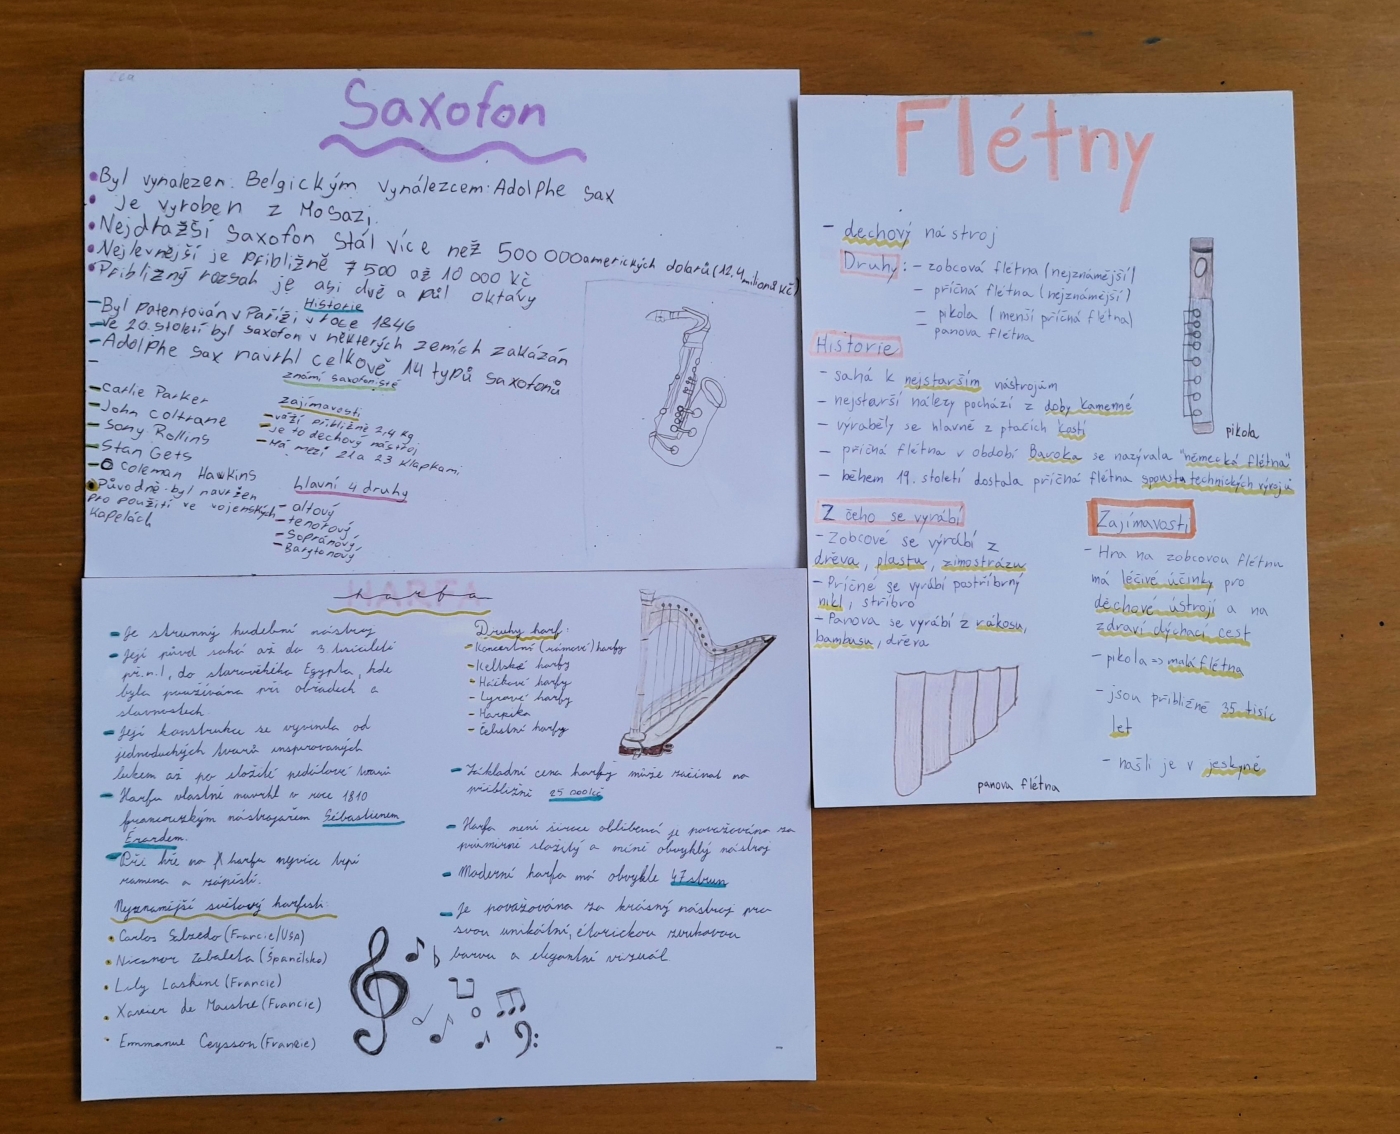 Saxofon
Byl vynalezen. Belgickým vynálezcem: Adolphe Sax
je vyroben z Mosazi.
Nejdražší Saxofon stál více než 500 000 amerických dolarů (12,4 milionů Kč)
Nejlevnější je přibližně 7 500 až 10 000 Kč
Přibližný rozsah je asi dvě a půl oktávy
Historie
- Byl Patentován v Paříži v roce 1846
- ve 20. století byl saxofon v některých zemích zakázán
- Adolphe Sax navrhl celkově 14 typů Saxofonů
-
známí Saxofonisté
- Carlie Parker
- John Coltrane
- Sony Rollins
- Stan Gets
- Coleman Hawkins
Původně byl navržen
Pro použití ve vojenských
Kapelách
Zajímavosti
- váží přibližně 2,4 kg
- je to dechový nástroj
- Má mezi 21 a 23 klapkami
hlavní 4 druhy
- altový
- tenorový
- Sopránový
- Barytonový
Flétny
- dechový nástroj
Druhy: - zobcová flétna (nejznámější)
- příčná flétna (nejznámější)
- pikola (menší příčná flétna)
- panova flétna
Historie
- sahá k nejstarším nástrojům
- nejstarší nálezy pochází z doby kamenné
- vyráběly se hlavně z ptačích kostí
- příčná flétna v období Baroka se nazývala "německá flétna"
- během 19. století dostala příčná flétna spousta technických vývojů
pikola
Z čeho se vyrábí
- Zobcové se vyrábí z
dřeva, plastu, zimostrázu
- Příčné se vyrábí postříbrný
nikl, stříbro
- Panova se vyrábí z rákosu,
bambusu, dřeva
panova flétna
Zajímavosti
- Hra na zobcovou flétnu
má léčivé účinky pro
dechové ústrojí a na
zdraví dýchací cest
- pikola => malá flétna
- jsou přibližně 35 tisíc
let
- našli je v jeskyně
harfa
- Je strunný hudební nástroj
- Její původ sahá až do 3. tisíciletí
př.n.l, do starověkého Egypta, kde
byla používána při obřadech a
slavnostech.
- Její konstrukce se vyvinula od
jednoduchých tvarů inspirovaných
lukem až po složité pedálové tvary
- Harfu vlastně navrhl v roce 1810
francouzským nástrojařem Sébastienem
Érardem.
- Při hře na harfu nejvíce trpí
ramena a zápěstí.
Nejznámější světový harfisti
Carlos Salzedo (Francie/USA)
Nicanor Zabaleta (Španělsko)
Lily Laskine (Francie)
Xavier de Maistre (Francie)
Emmanuel Ceysson (Francie)
Druhy harf:
- Koncertní (rámové) harfy
- Keltské harfy
- Háčkové harfy
- Lyrové harfy
- Harpika
- Čelistní harfy
- Základní cena harfy může začínat na
přibližně 25 000 kč
- Harfa není široce oblíbená je považována za
průměrně složitý a méně obvyklý nástroj
- Moderní harfa má obvykle 47 strun
- Je považována za krásný nástroj pro
svou unikátní, éterickou zvukovou
barvu a elegantní vizuál